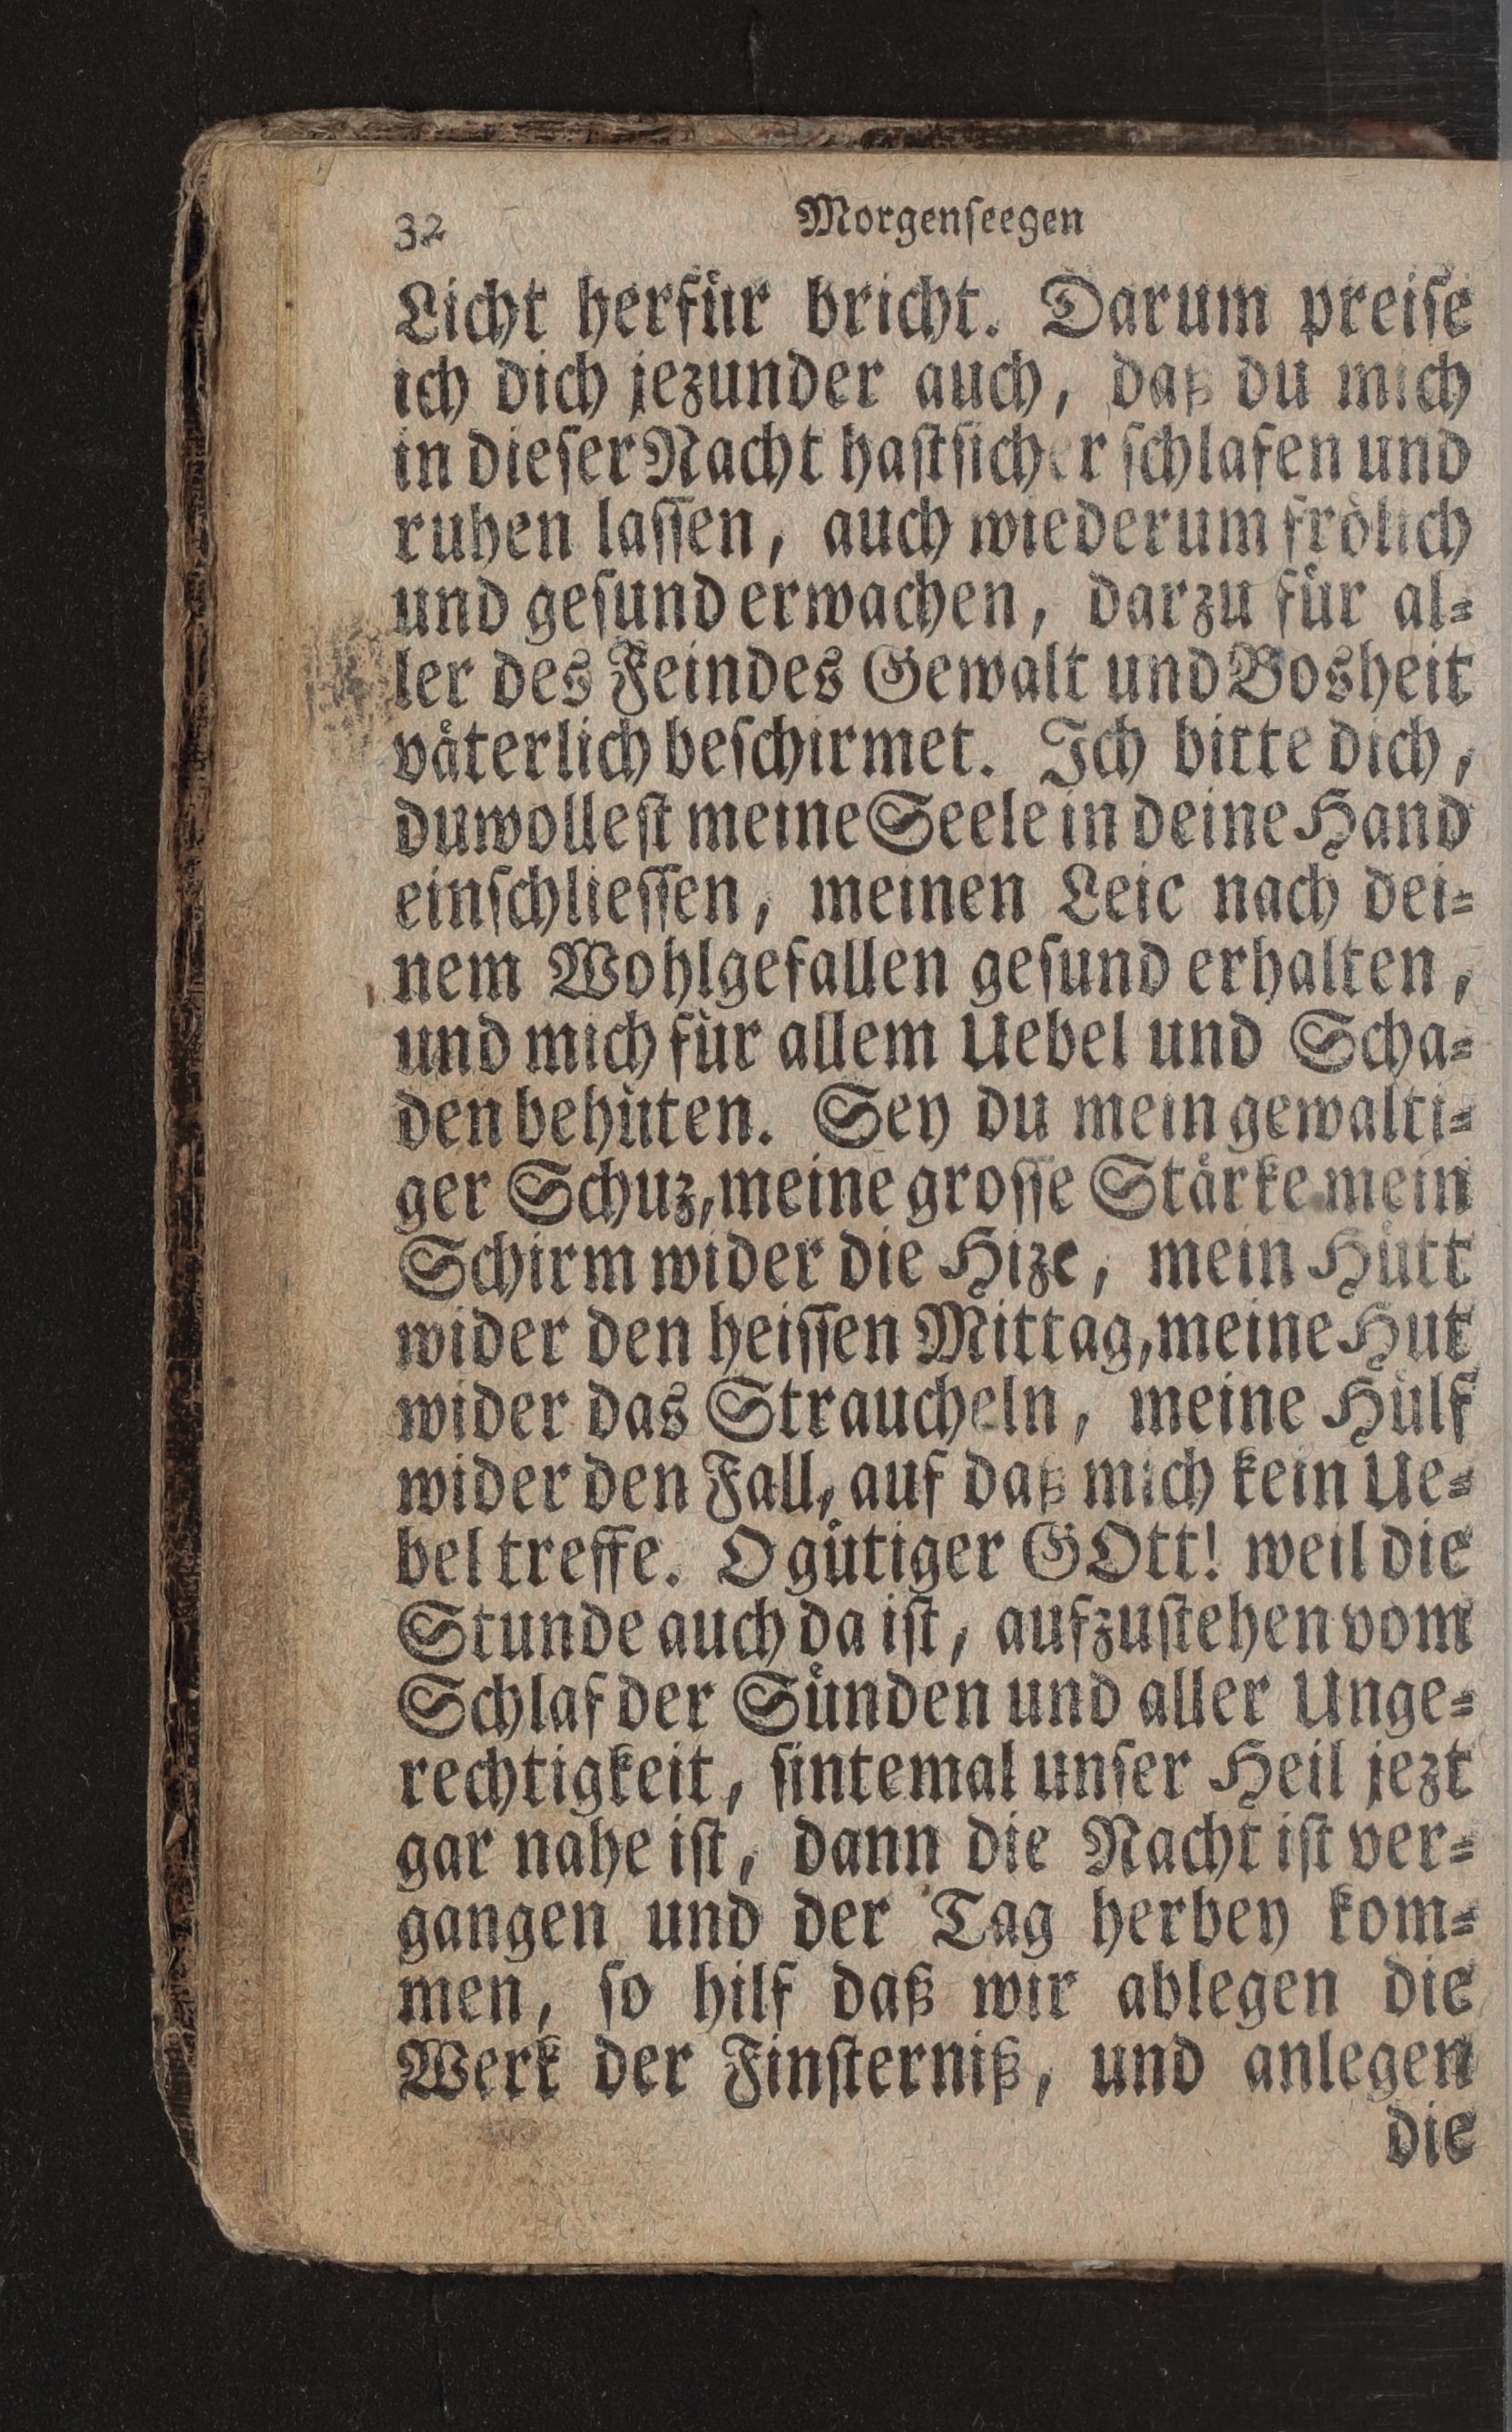 32 Morgenseegen
Licht herfür bricht. Darum preise
ich dich jezunder auch, daß du mich
in dieser Nacht hast sicher schlafen und
ruhen lassen, auch wiederum frölich
und gesund erwachen, darzu für al-
ler des Feindes Gewalt und Bosheit
väterlich beschirmet. Ich bitte dich,
du wollest meine Seele in deine Hand
einschliessen, meinen Leic nach dei-
nem Wohlgefallen gesund erhalten,
und mich für allem Uebel und Scha-
den behüten. Sey du mein gewalti-
ger Schuz, meine grosse Stärke mein
Schirm wider die Hize, mein Hütt
wider den heissen Mittag, meine Hut
wider das Straucheln, meine Hülf
wider den Fall, auf daß mich kein Ue-
bel treffe. O gütiger GOtt! weil die
Stunde auch da ist, aufzustehen vom
Schlaf der Sünden und aller Unge-
rechtigkeit, sintemal unser Heil jezt
gar nahe ist, dann die Nacht ist ver-
gangen und der Tag herbey kom-
men, so hilf daß wir ablegen die
Werk der Finsterniß, und anlegen
die